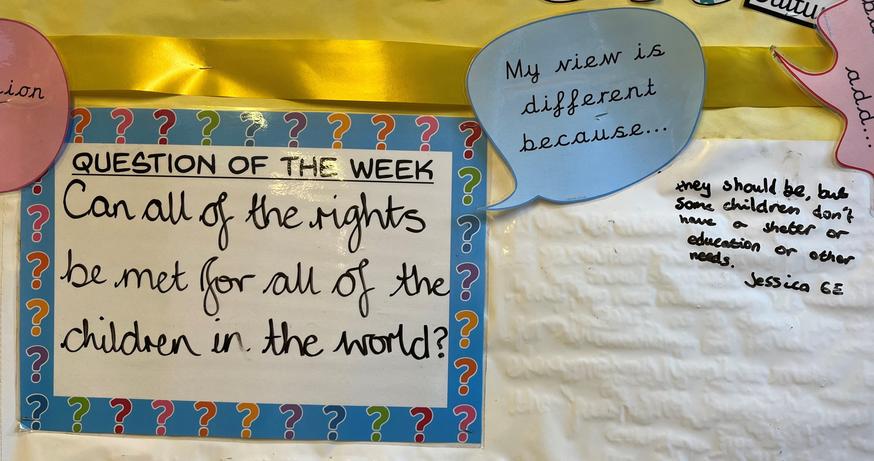 ion
My view is
different
because...
add...
QUESTION OF THE WEEK
Can all of the rights
be met for all of the
children in the world?
they should be, but
some children don't
have a sheter or
education or other
needs.
Jessica 6E